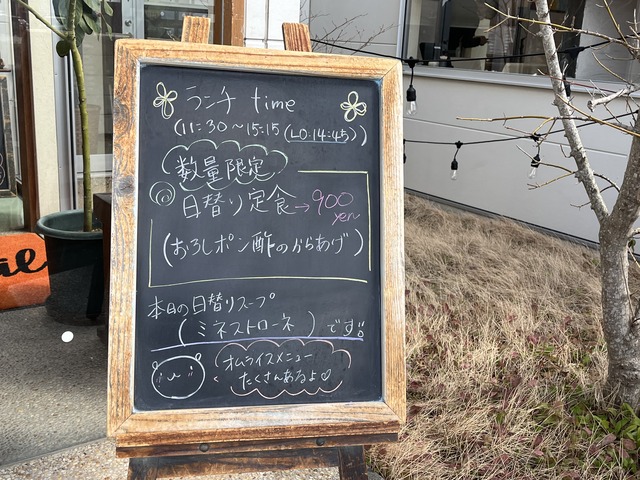 ランチ time
(11:30～15:15 (LO:14:45))
数量限定
日替り定食→900
yen
(おろしポン酢のからあげ)
本日の日替りスープ
(ミネストローネ)です!!
オムライスメニュー
たくさんあるよ♡